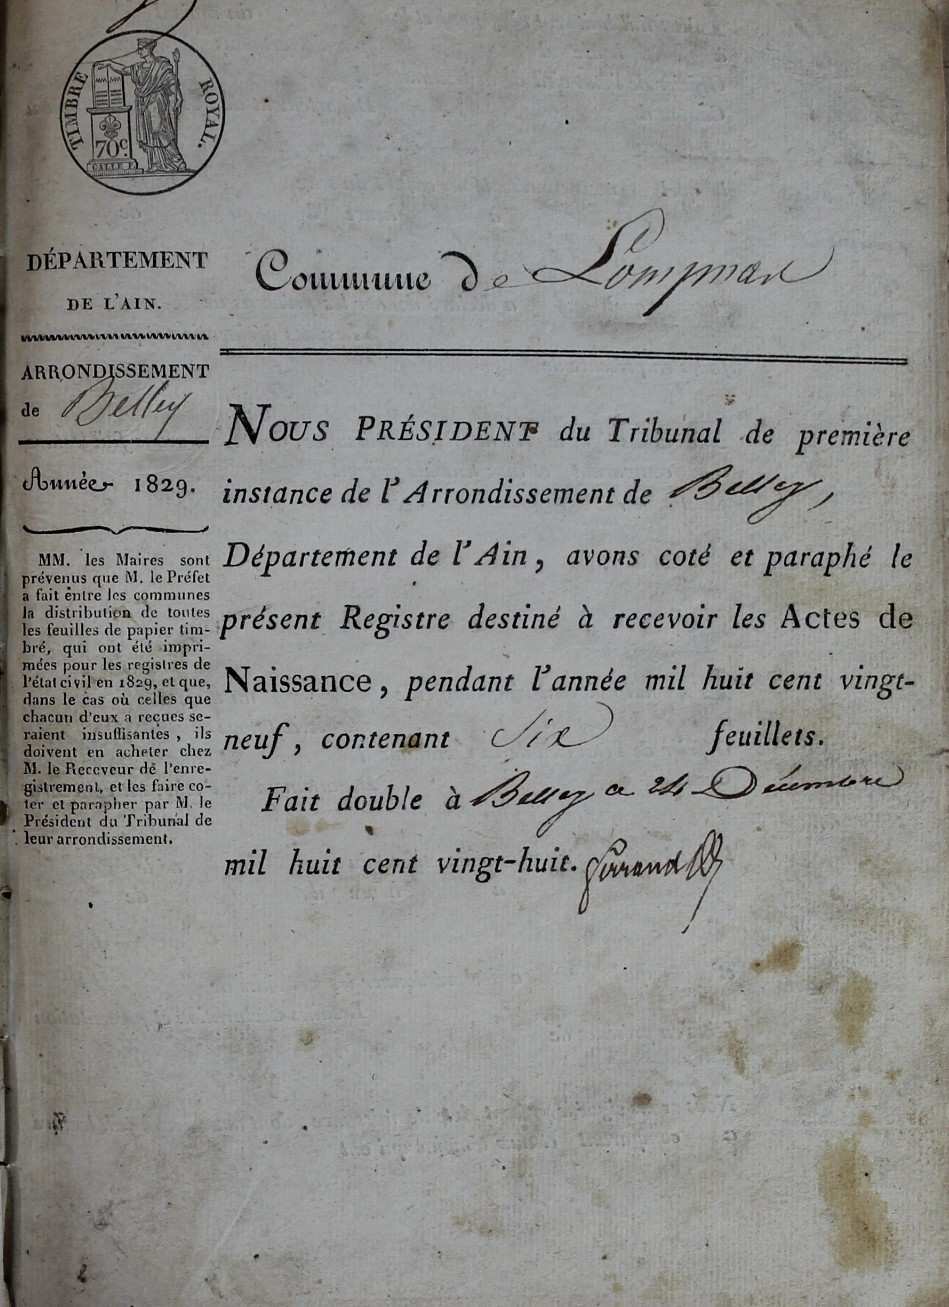 TIMBRE ROYAL.
70c.
DÉPARTEMENT
DE L'AIN.
ARRONDISSEMENT
de Belley
Année 1829.
MM. les Maires sont
prévenus que M. le Préfet
a fait entre les communes
la distribution de toutes
les feuilles de papier tim-
bré, qui ont été impri-
mées pour les registres de
l'état civil en 1829, et que,
dans le cas où celles que
chacun d'eux a reçues se-
raient insuffisantes, ils
doivent en acheter chez
M. le Receveur de l'enre-
gistrement, et les faire co-
ter et parapher par M. le
Président du Tribunal de
leur arrondissement.
Commune De Lompnas
NOUS PRÉSIDENT du Tribunal de première
instance de l'Arrondissement de Belley,
Département de l'Ain, avons coté et paraphé le
présent Registre destiné à recevoir les Actes de
Naissance, pendant l'année mil huit cent vingt-
neuf, contenant Six feuillets.
Fait double à Belley ce 24 Décembre
mil huit cent vingt-huit.